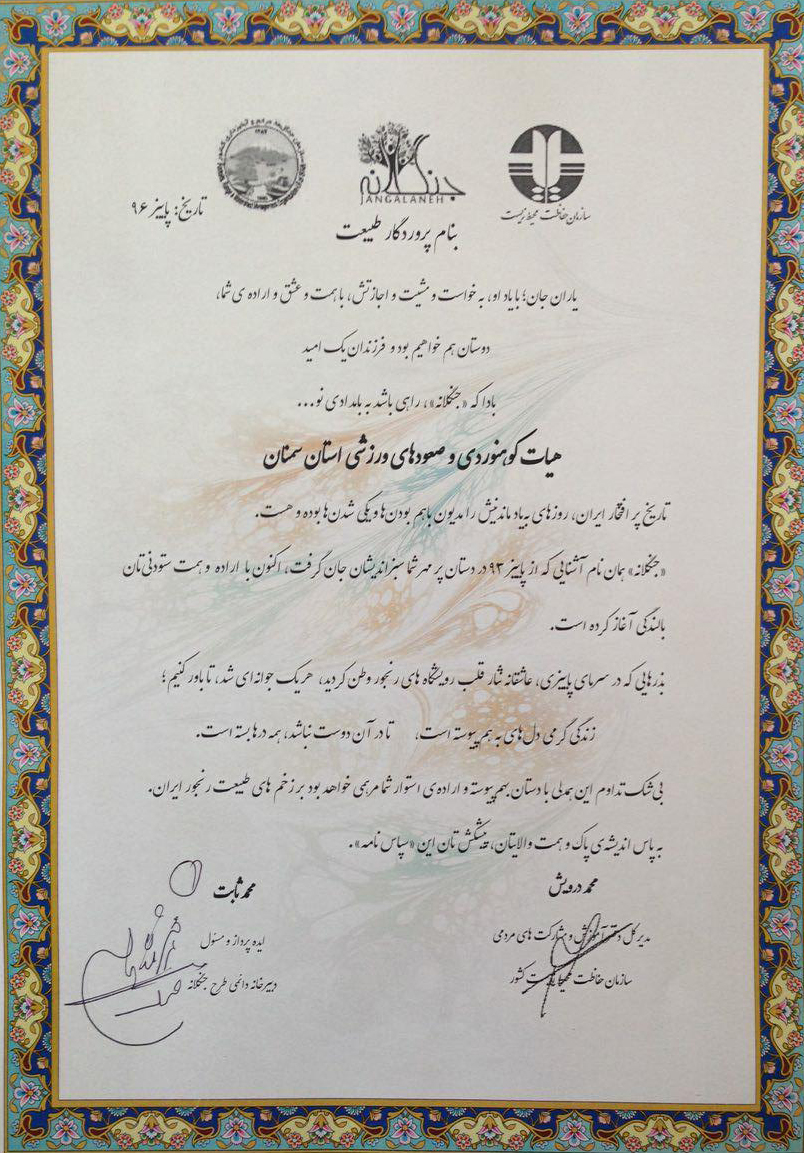 سازمان حفاظت محیط زیست
جنگلانه
JANGALANEH
تاریخ: پاییز ۹۶
بنام پروردگار طبیعت
یاران جان؛ با یاد او، به خواست و مشیت و اجازتش، با همت و عشق و اراده ی شما،
دوستان هم خواهیم بود و فرزندان یک امید
بادا که «جنگلانه»، راهی باشد به بامدادی نو...
هیات کوهنوردی و صعودهای ورزشی استان سمنان
تاریخ پر افتخار ایران، روزهای بیاد ماندنیش را مدیون باهم بودن‌ها و یکی شدن‌ها بوده و هست.
«جنگلانه» همان نام آشنایی که از پاییز ۹۳ در دستان پر مهر شما سبزاندیشان جان گرفت، اکنون با اراده و همت ستودنی‌تان
بالندگی آغاز کرده است.
بذرهایی که در سرمای پاییزی، عاشقانه نثار قلب رویشگاه های رنجور وطن کردید، هر یک جوانه‌ای شد، تا باور کنیم؛
زندگی گرمی دل های به هم پیوسته است، تا در آن دوست نباشد، همه درها بسته است.
بی شک تداوم این همدلی با دستان بهم پیوسته و اراده‌ی استوار شما مرهمی خواهد بود بر زخم های طبیعت رنجور ایران.
به پاس اندیشه‌ی پاک و همت والایتان، پیشکش تان این «سپاس نامه».
محمد درویش
مدیر کل دفتر آموزش و مشارکت های مردمی
سازمان حفاظت محیط زیست کشور
محمد ثابت
ایده پرداز و مسئول
دبیرخانه دائمی طرح جنگلانه